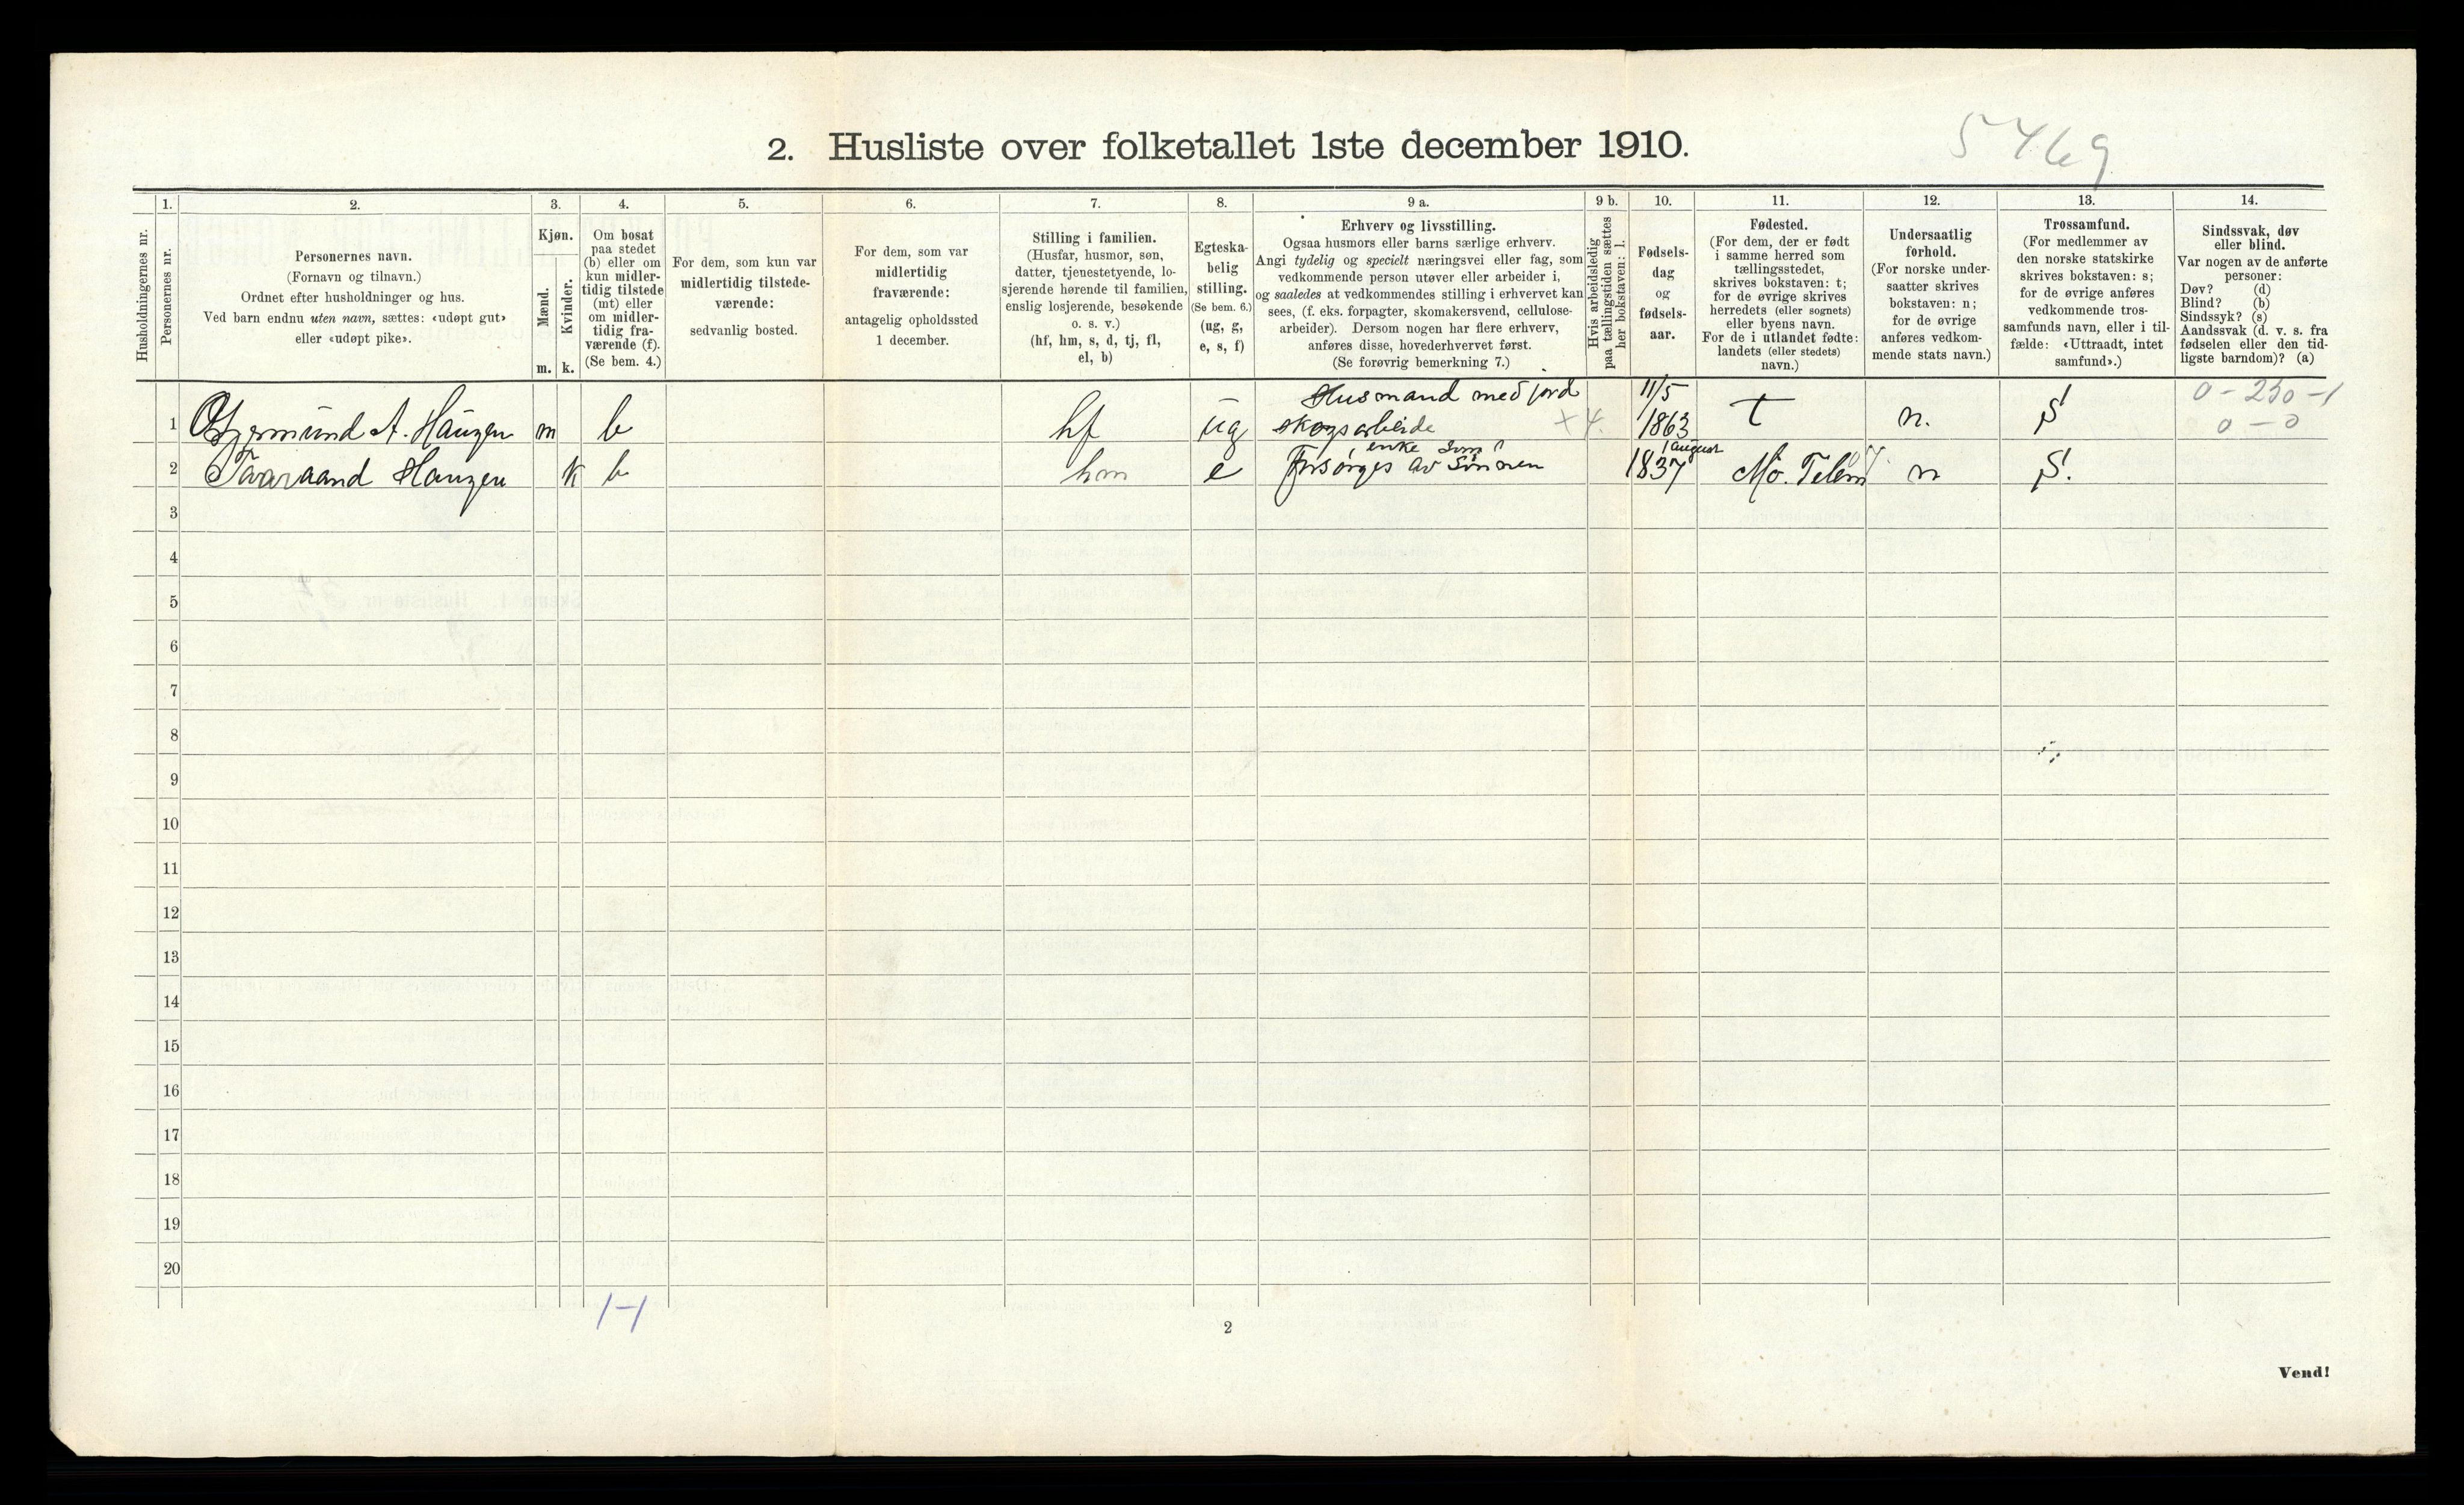 5469
2. Husliste over folketallet 1ste december 1910.
Husholdningernes nr.
1.
Personernes nr.
2.
Personernes navn.
(Fornavn og tilnavn.)
Ordnet efter husholdninger og hus.
Ved barn endnu uten navn, sættes: «udøpt gut»
eller «udøpt pike».
3.
Kjøn.
Mænd.
Kvinder.
m. k.
4.
Om bosat
paa stedet
(b) eller om
kun midler-
tidig tilstede
(mt) eller
om midler-
tidig fra-
værende (f).
(Se bem. 4.)
5.
For dem, som kun var
midlertidig tilstede-
værende:
sedvanlig bosted.
6.
For dem, som var
midlertidig
fraværende:
antagelig opholdssted
1 december.
7.
Stilling i familien.
(Husfar, husmor, søn,
datter, tjenestetyende, lo-
sjerende hørende til familien,
enslig losjerende, besøkende
o. s. v.)
(hf, hm, s, d, tj, fl,
el, b)
8.
Egteska-
belig
stilling.
(Se bem. 6.)
(ug, g,
e, s, f)
9 a.
Erhverv og livsstilling.
Ogsaa husmors eller barns særlige erhverv.
Angi tydelig og specielt næringsvei eller fag, som
vedkommende person utøver eller arbeider i,
og saaledes at vedkommendes stilling i erhvervet kan
sees, (f. eks. forpagter, skomakersvend, cellulose-
arbeider). Dersom nogen har flere erhverv,
anføres disse, hovederhvervet først.
(Se forøvrig bemerkning 7.)
9 b.
Hvis arbeidsledig
paa tællingstiden sættes
her bokstaven: l.
10.
Fødsels-
dag
og
fødsels-
aar.
11.
Fødested.
(For dem, der er født
i samme herred som
tællingsstedet,
skrives bokstaven: t;
for de øvrige skrives
herredets (eller sognets)
eller byens navn.
For de i utlandet fødte:
landets (eller stedets)
navn.)
12.
Undersaatlig
forhold.
(For norske under-
saatter skrives
bokstaven: n;
for de øvrige
anføres vedkom-
mende stats navn.)
13.
Trossamfund.
(For medlemmer av
den norske statskirke
skrives bokstaven: s;
for de øvrige anføres
vedkommende tros-
samfunds navn, eller i til-
fælde: «Uttraadt, intet
samfund».)
14.
Sindssvak, døv
eller blind.
Var nogen av de anførte
personer:
Døv? (d)
Blind? (b)
Sindssyk? (s)
Aandssvak (d. v. s. fra
fødselen eller den tid-
ligste barndom)? (a)
Husmand med jord 11/5 0 - 250 - 1
1 A. Haugen m b hf ug skogsarbeide + 4. 1863 t n. S 0 - 0
enke 1 august
2 Haugen k b hm e Forsørges av Sønnen 1837 Mo. Telem n S.
3
4
5
6
7
8
9
10
11
12
13
14
15
16
17
18
19
20
1-1
2
Vend!